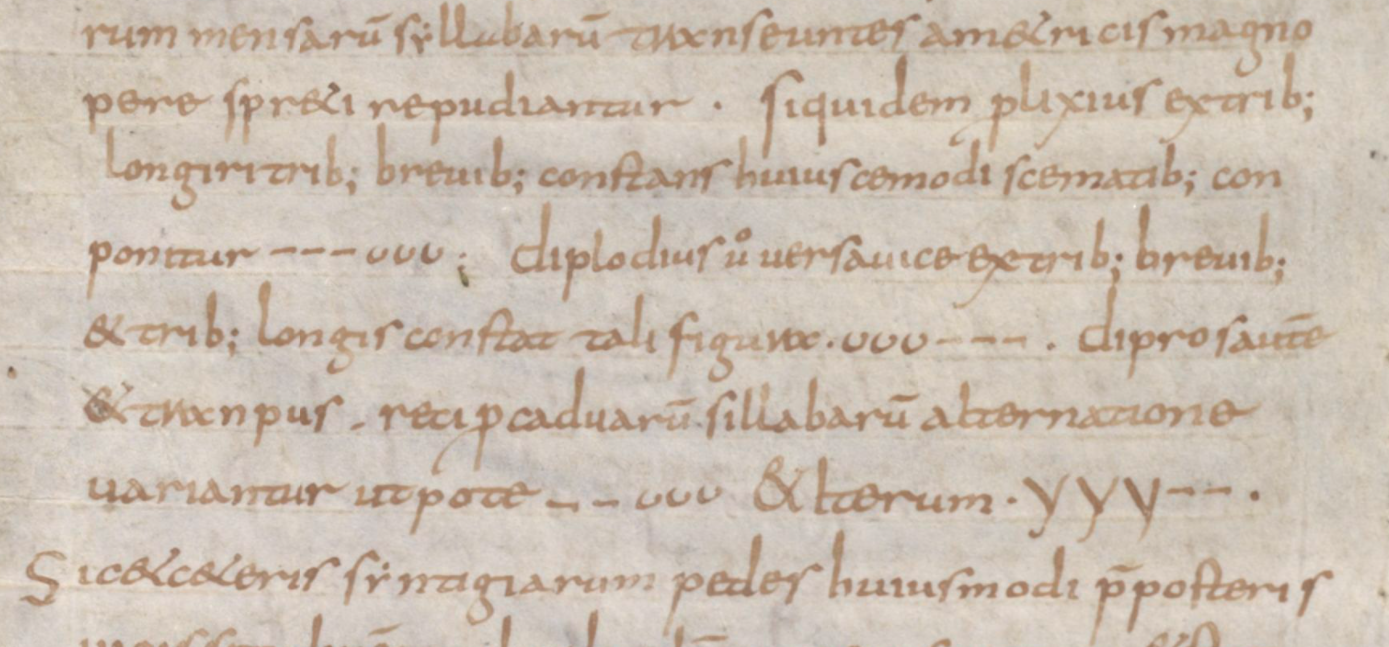 rum mensarū syllabarū transeuntes am&ricis magno
pere spr&i repudiantur . siquidem plixius extrib;
longiri trib; breuib; constans huiuscemodi scematib; con
ponitur ---υυυ; diplodius ů uersa uice extrib; breuib;
& trib; longis constat tali figura. υυυ---. diprosautē
& tranpus . recipcaduarū sillabarū alternatione
uariantur utpote --υυυ &lterum. yyy--.
Sic&c&eris syntagiarum pedes huiusmodi p̄posteris